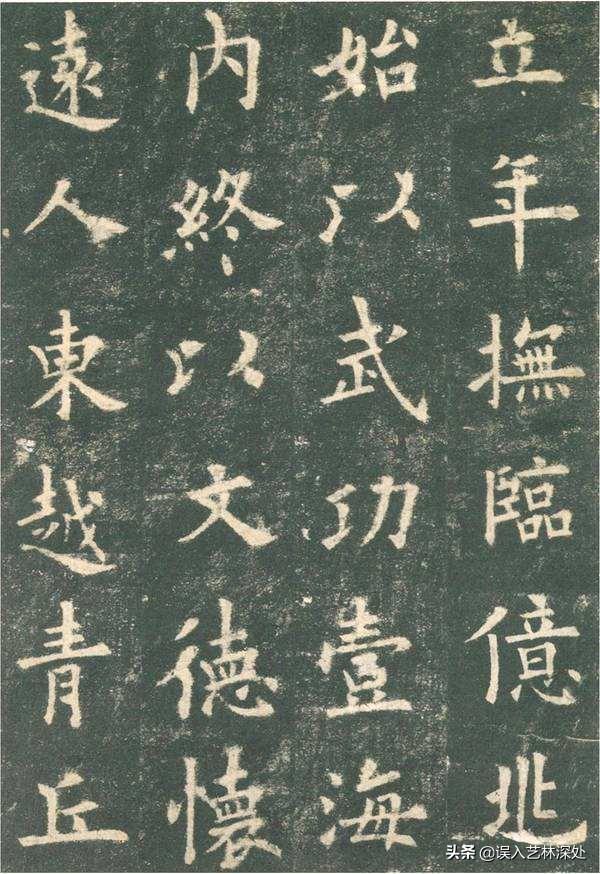 立年撫臨億兆
始以武功壹海
内終以文德懷
遠人東越青丘
头条 @误入艺林深处